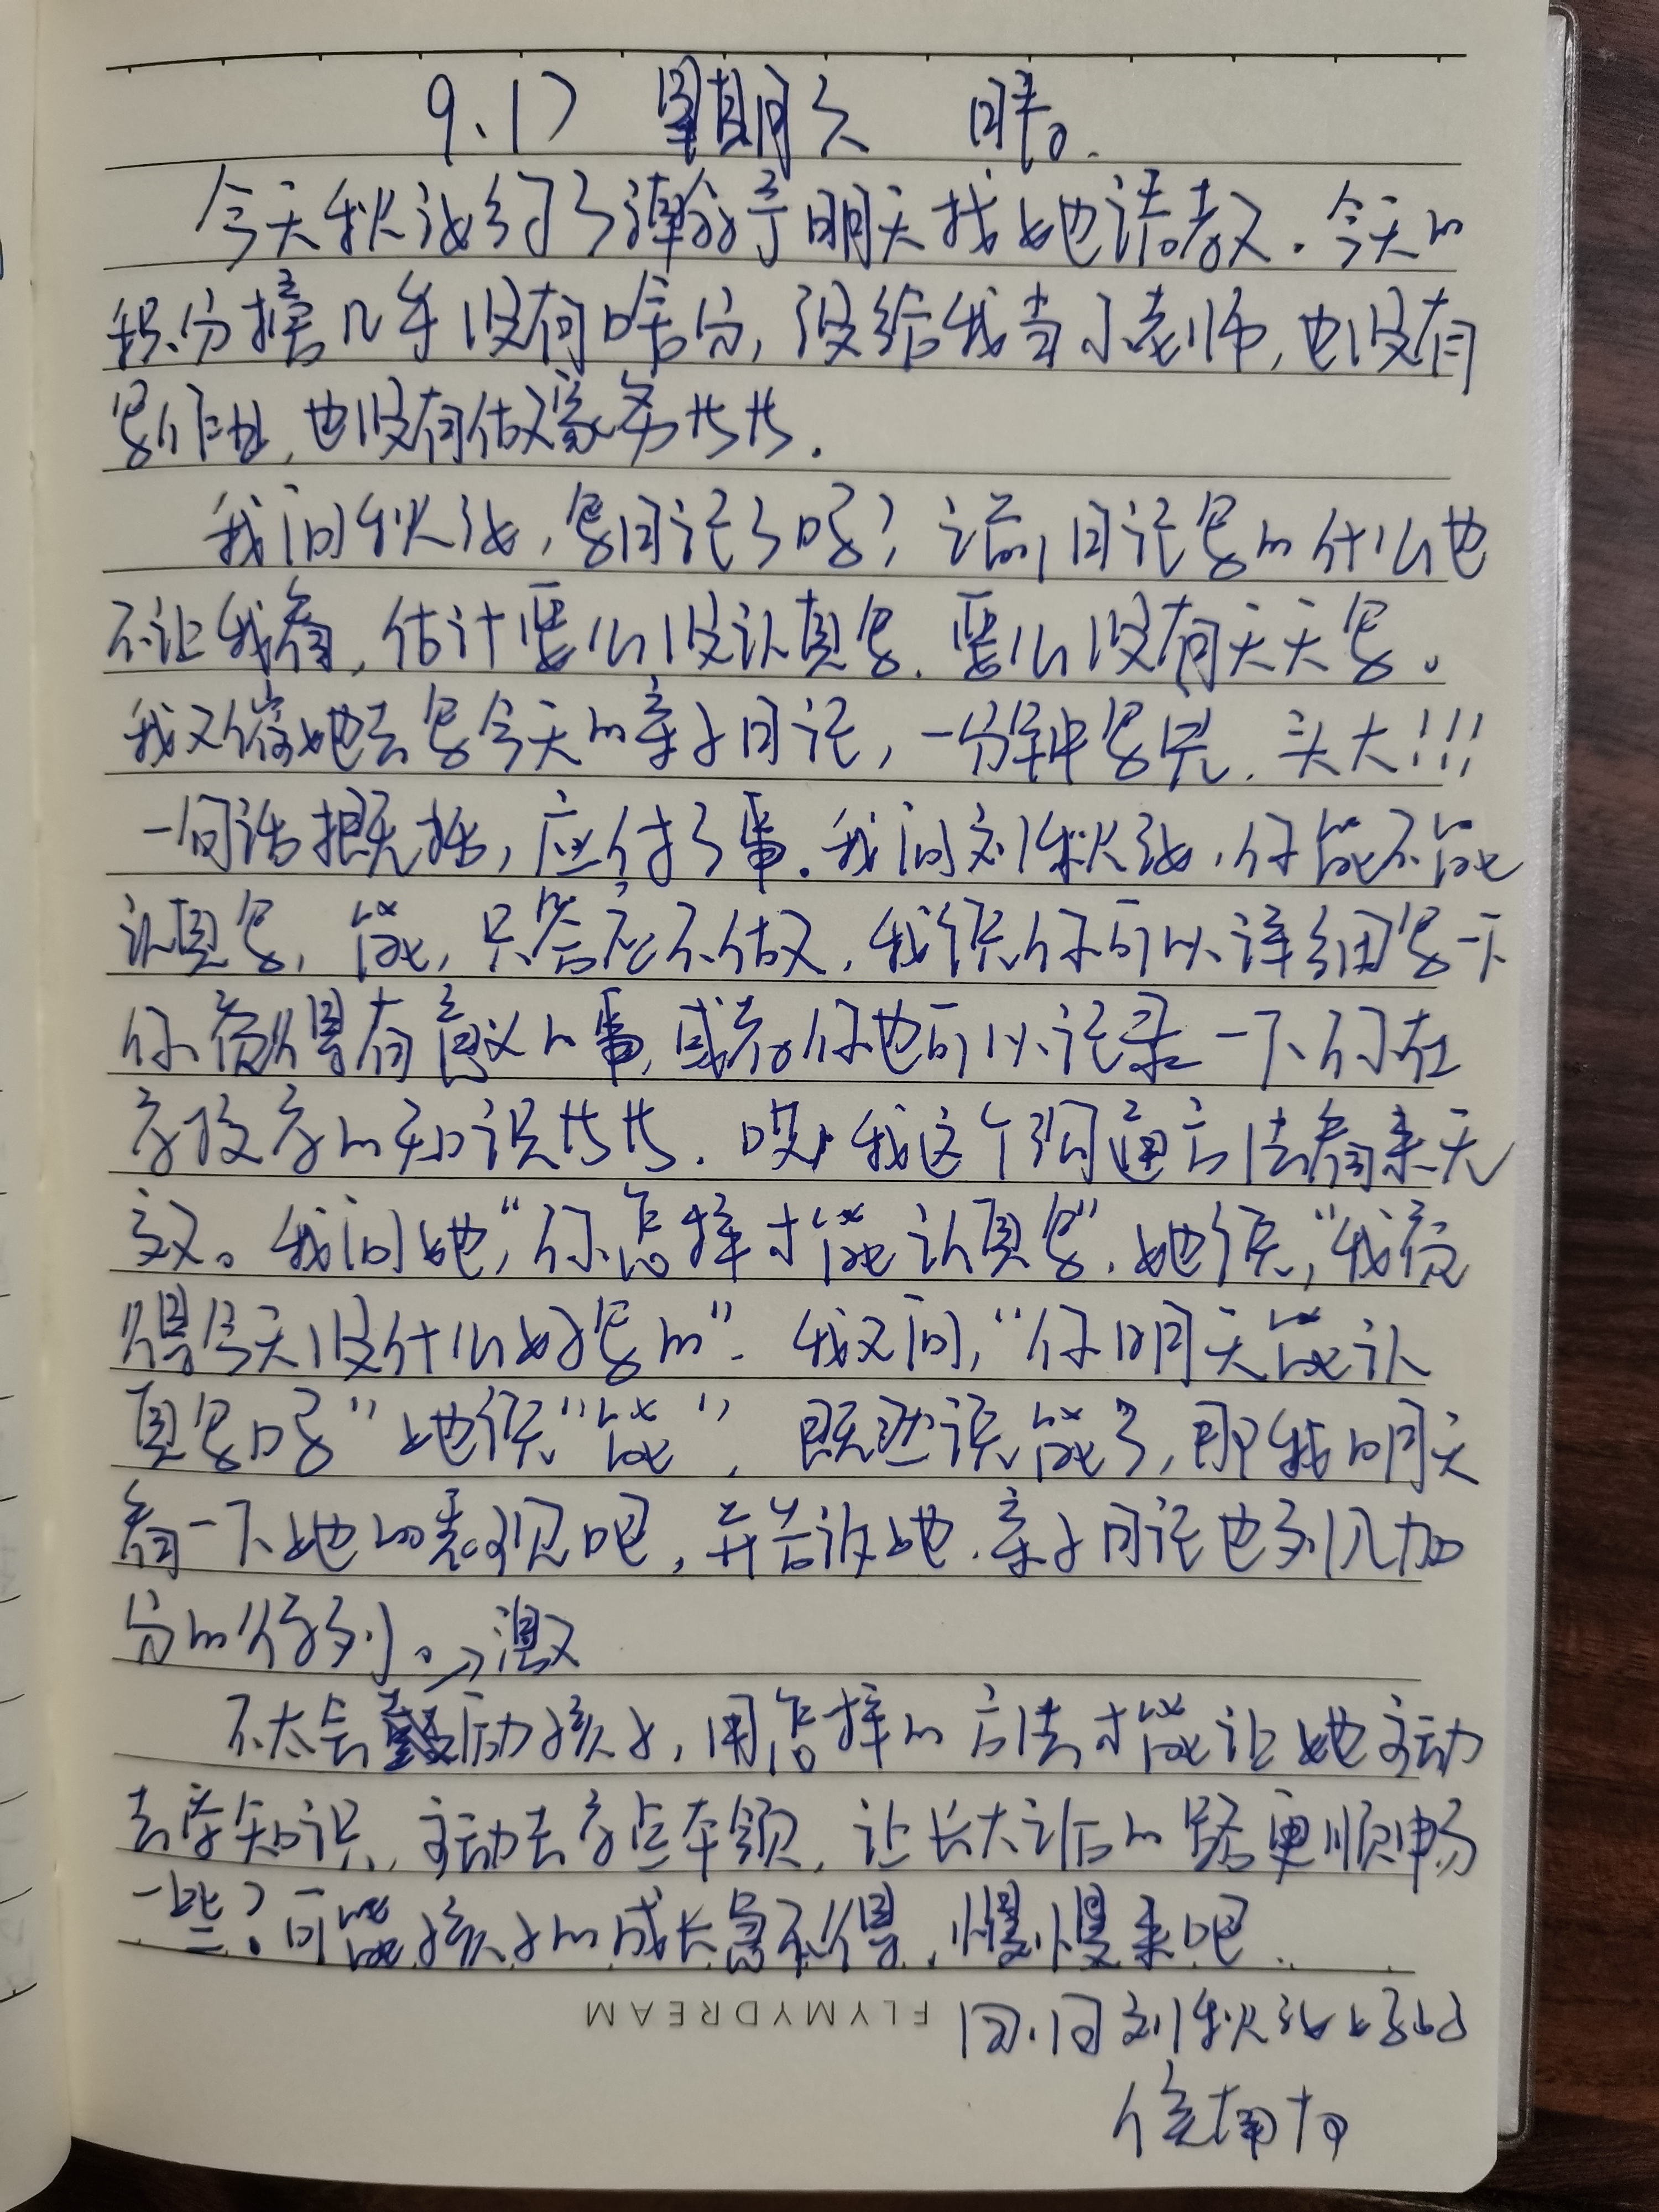 9.17 星期天
今天秋汝约了谭 明天找她请教。今天的
积分榜几乎没有啥分,没给我当小老师,也没有
写作业,也没有做家务等等。
我问秋汝,写日记了吗?话说日记写的什么也
不让我看,估计要么没认真写,要么没有天天写。
我又催她去写今天的亲子日记,一分钟写完,头大!!!
一句话概括,应付了事。我问刘秋汝,你能不能
认真写,能,只答应不做,我说你可以详细写一下
你觉得有意义的事,或者你也可以记录一下你在
学校学的知识等等。哎,我这个沟通方法看来无
效。我问她,“你怎样才能认真写”,她说,“我觉
得今天没什么好写的”。我又问,“你明天能认
真写吗”她说“能”,既然说能了,那我明天
看一下她的表现吧,并告诉她,亲子日记也列入加
分的行列。→激
不太会 励孩子,用怎样的方法才能让她主动
去学知识,主动去学点本领,让长大以后的路更顺畅
一些?可能孩子的成长急不得,慢慢来吧。
FLYMYDREAM
四.四刘秋汝妈妈